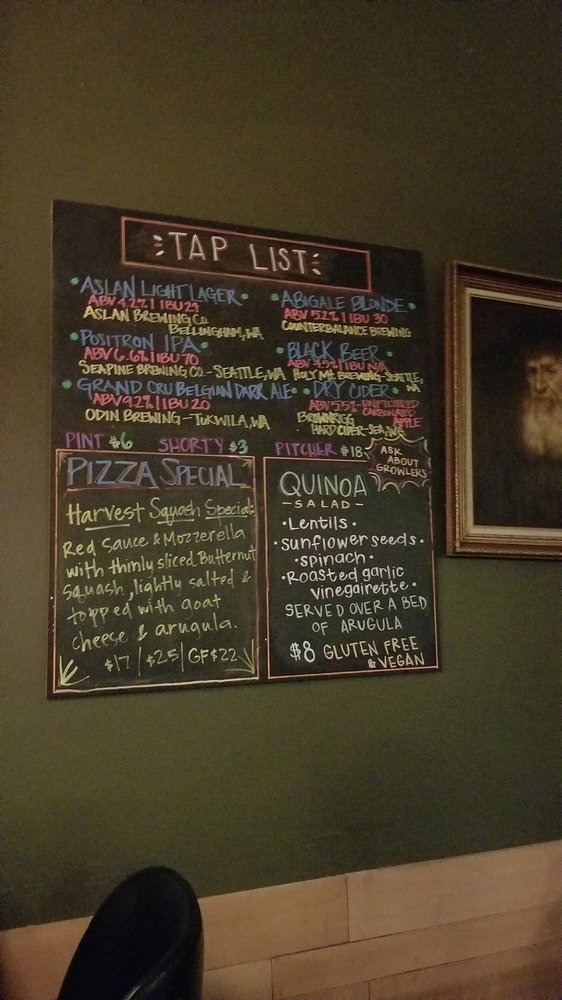 TAP LIST
• ASLAN LIGHT LAGER •
ABV 4.2% | IBU 23
ASLAN BREWING Co.
BELLINGHAM, WA
• POSITRON IPA •
ABV 6.6% | IBU 70
SEAPINE BREWING CO. - SEATTLE, WA
• GRAND CRU BELGIAN DARK ALE •
ABV 9.2% | IBU 20
ODIN BREWING - TUKWILA, WA
• ABIGALE BLONDE •
ABV 5.2% | IBU 30
COUNTERBALANCE BREWING
• BLACK BEER •
IBU N/A
HOLY MT. BREWING - SEATTLE, WA
• DRY CIDER •
ABV 5.5% UNFILTERED
CARBONATED
APPLE
HARD CIDER - SEA, WA
PINT $6 SHORTY $3 PITCHER $18
ASK
ABOUT
GROWLERS
PIZZA SPECIAL
Harvest Squash Special:
Red Sauce & Mozzerella
with thinly sliced Butternut
squash, lightly salted &
topped with goat
cheese & arugula.
$17 | $25 | GF $22
QUINOA
- SALAD -
• Lentils •
• sunflower seeds •
• spinach •
• Roasted garlic
vinegairette •
SERVED OVER A BED
OF ARUGULA
$8 GLUTEN FREE
& VEGAN